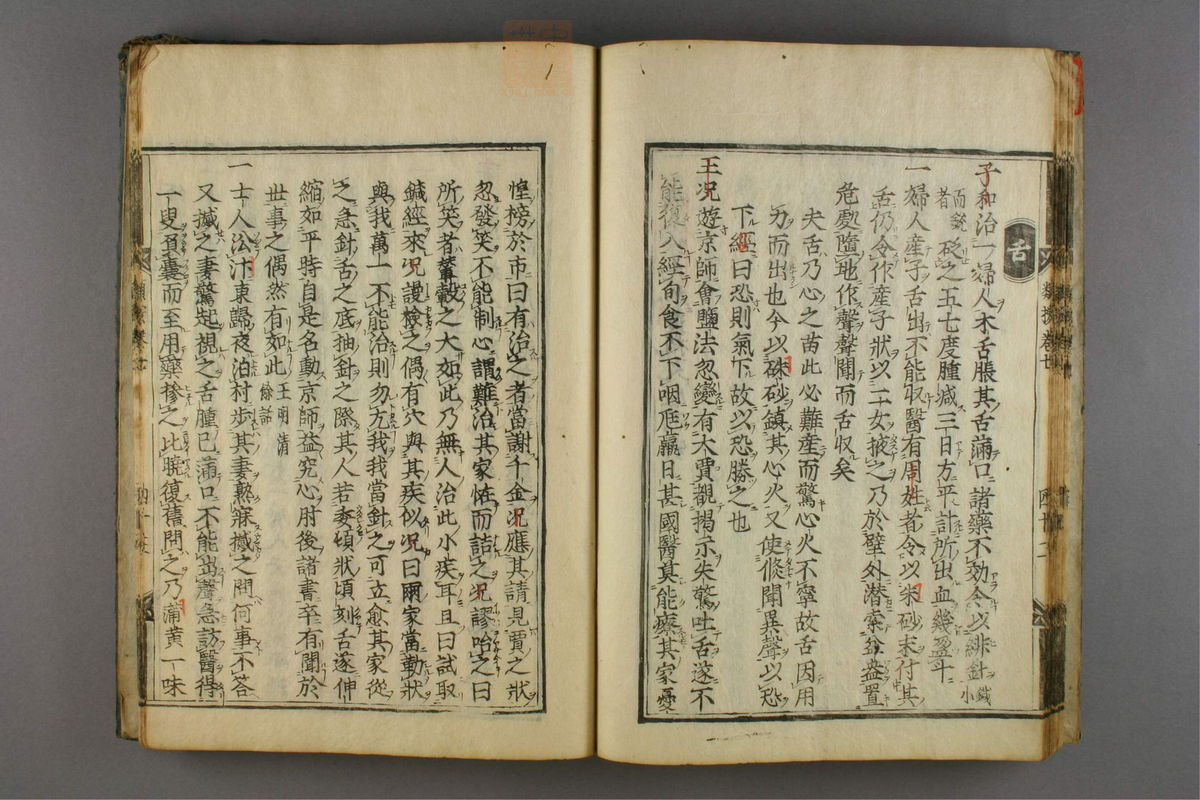 舌
子和治一婦人木舌脹其舌滿口諸藥不効令以緋針小鐵
而銳者砭之五七度腫减三日方平計所出血幾盈斗
一婦人産子舌出不能収醫有周姓者令以朱砂末付其
舌仍令作産子狀以二女掖之乃於壁外潜累盆盎置
危處墮地作聲聲聞而舌収矣
夫舌乃心之苗此必難産而驚心火不寧故舌因用
力而出也今以硃砂鎮其心火又使倐聞異聲以恐
下經曰恐則氣下故以恐勝之也
王况遊京師會鹽法忽變有大賈覩揭示失驚吐舌遂不
能復入經旬食不下咽尫羸日甚國醫莫能療其家憂
惶榜於市曰有治之者當謝千金况應其請見賈之狀
忽發笑不能制心謂難治其家恠而詰之况謬咍之曰
所笑者輦轂之大如此乃無人治此小疾耳且曰試取
鍼經來况謾檢之偶有穴與其疾似况曰爾家當勤狀
與我萬一不能治則勿尤我我當針之可立愈其家從
之急針舌之底抽針之際其人若委頓狀頃刻舌遂伸
縮如平時自是名動京師益究心肘後諸書卒有聞於
世事之偶然有如此王明清餘話
一士人沿汴東歸夜泊村步其妻熟寐撼之問何事不答
又撼之妻驚起視之舌腫已滿口不能出聲急訪醫得
一叟負囊而至用藥摻之此曉復舊問之乃蒲黄一味